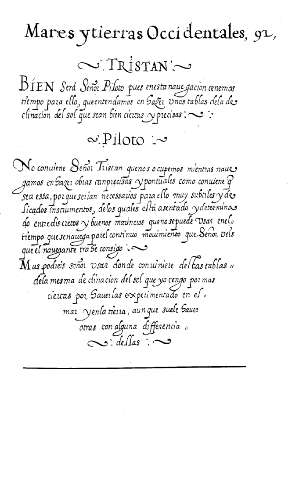 Mares y tierras Occidentales, 92,
TRISTAN
BIEN Será Señor Piloto pues en esta nauegacion tenemos
tiempo para ello, que entendamos en hazer vnas tablas dela de
clinacion del sol que sean bien ciertas y precisas
Piloto
No conuiene Señor Tristan que nos ocupemos mientras naue
gamos en hazer obras tan precisas y pontuales como conuiene q
sea esta, porque serian necessarios para ello muy subtiles y de
licados instrumentos, delos quales está asentado y determina
do entre discretos y buenos marineros que no se puede vsar enel
tiempo que se nauega por el continuo mouimiento que Señor
que el nauegante trae consigo
Mas podreis señor vsar donde conuiniere destas tablas
dela mesma declinacion del sol que yo tengo por mas
ciertas por hauerlas experimentado en el
mar y en la tierra, aunque suele hauer
otras con alguna differencia
dellas